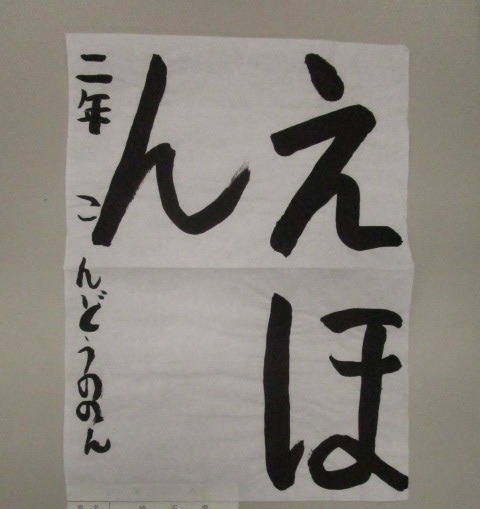 えほ
ん
二年 こんどうののん